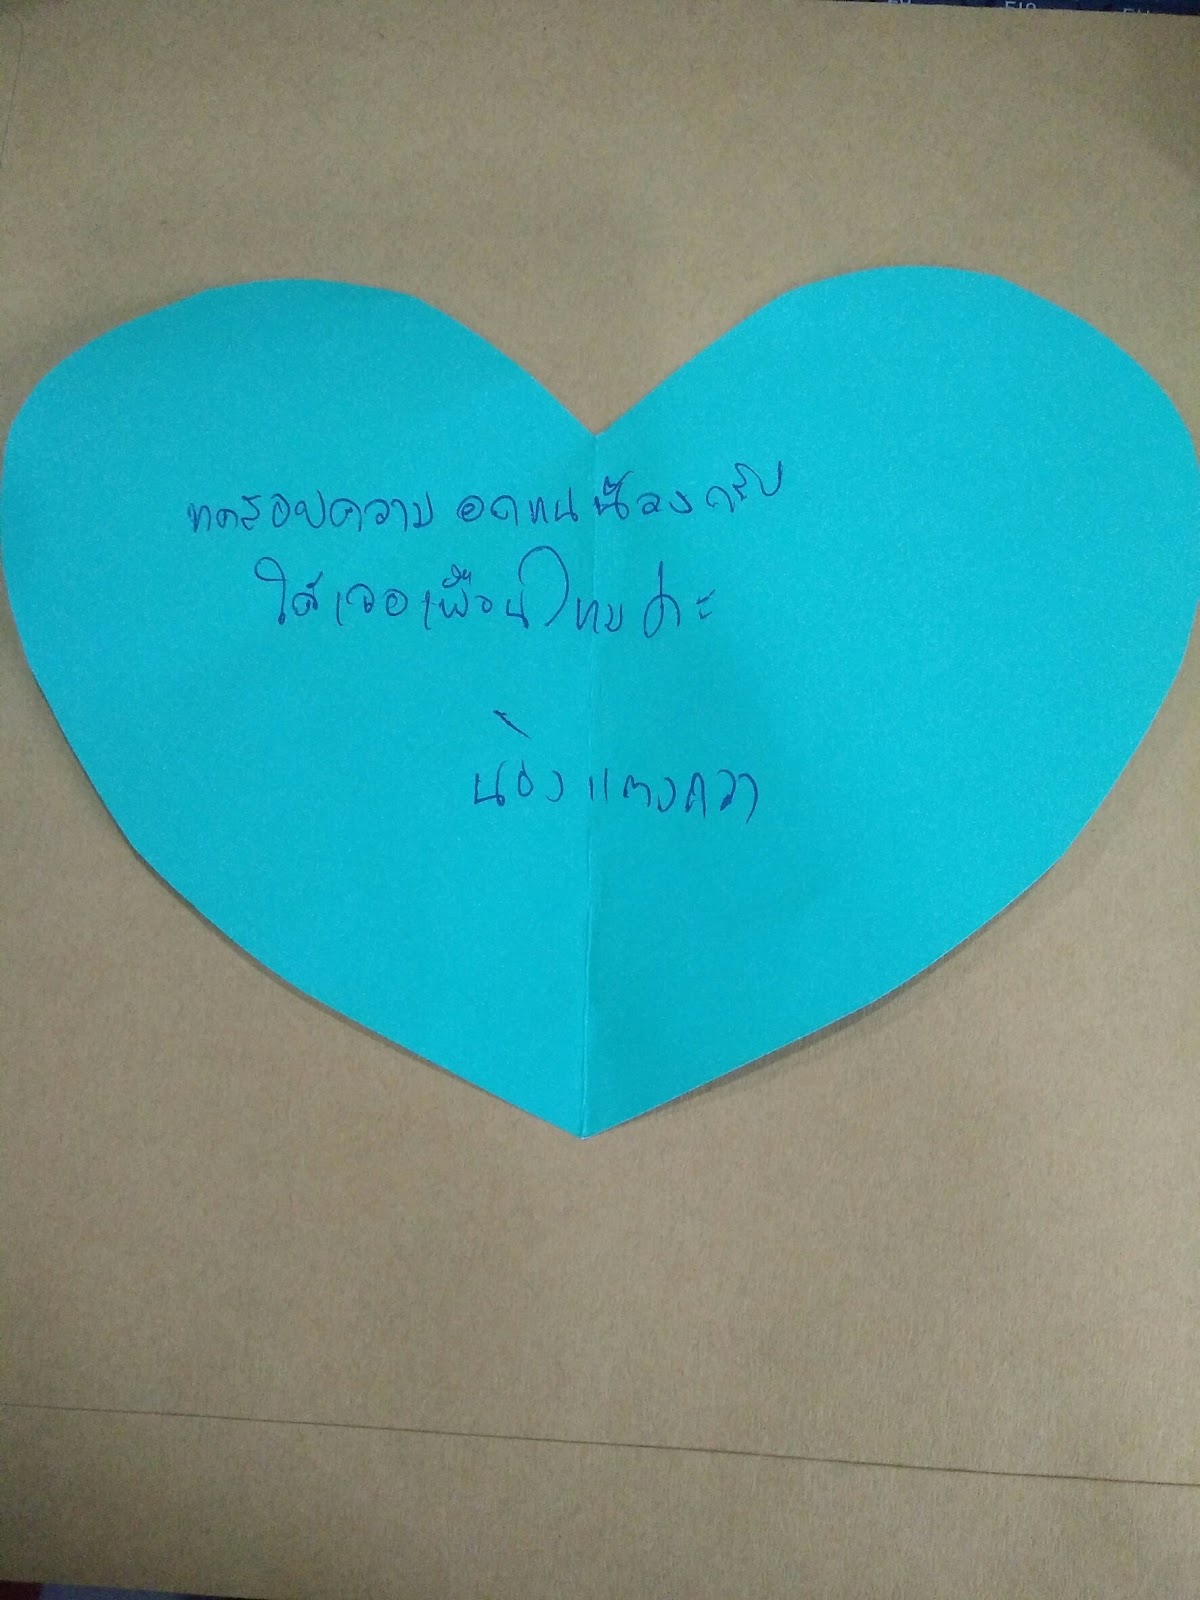 ทดสอบความ อดทน น้องครับ
ได้เจอเพื่อนใหม่ค่ะ
น้องแตงกวา